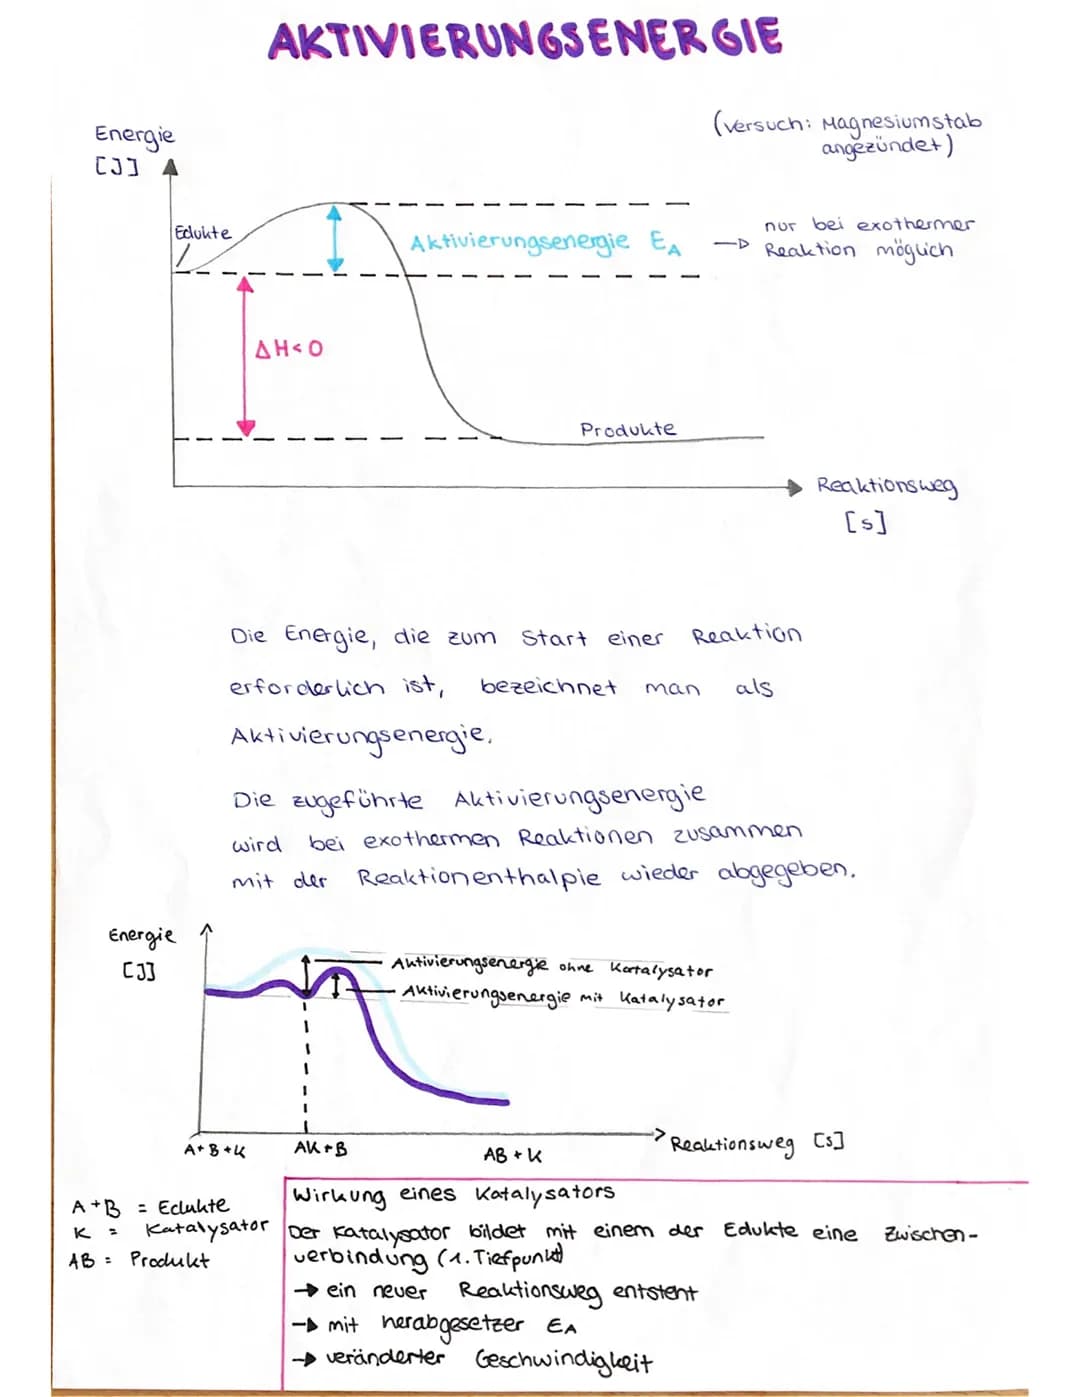 AKTIVIERUNGSENERGIE
(Versuch: Magnesiumstab
angezündet)
Energie
[J]
Edukte
Aktivierungsenergie EA
nur bei exothermer
Reaktion möglich
ΔH<0
Produkte
Reaktionsweg
[s]
Die Energie, die zum Start einer Reaktion
erforderlich ist, bezeichnet man als
Aktivierungsenergie.
Die zugeführte Aktivierungsenergie
wird bei exothermen Reaktionen zusammen
mit der Reaktionenthalpie wieder abgegeben.
Energie
[J]
Aktivierungsenergie ohne Katalysator
Aktivierungsenergie mit Katalysator
A+B+K
AK+B
AB+K
Reaktionsweg [s]
A+B = Edukte
K = Katalysator
AB = Produkt
Wirkung eines Katalysators
Der Katalysator bildet mit einem der Edukte eine Zwischen-
verbindung (1. Tiefpunkt)
→ ein neuer Reaktionsweg entsteht
→ mit herabgesetzer EA
→ veränderter Geschwindigkeit